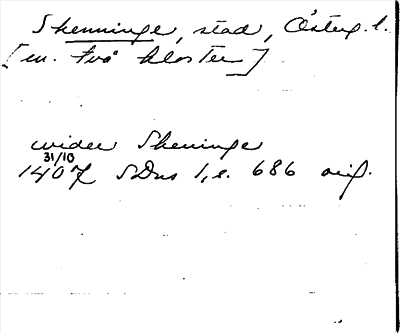 Skenninge, stad, Österg. l.
[m. två kloster]
wider Skeninge
31/10
1407 SDns 1, s. 686 orig.